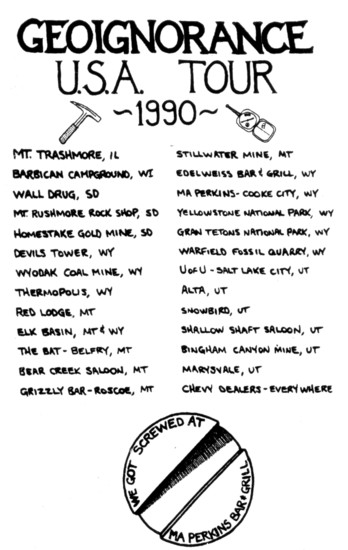 GEOIGNORANCE
U.S.A. TOUR
~1990~
MT. TRASHMORE, IL
BARBICAN CAMPGROUND, WI
WALL DRUG, SD
MT RUSHMORE ROCK SHOP, SD
HOMESTAKE GOLD MINE, SD
DEVILS TOWER, WY
WYODAK COAL MINE, WY
THERMOPOLIS, WY
RED LODGE, MT
ELK BASIN, MT & WY
THE BAT - BELFRY, MT
BEAR CREEK SALOON, MT
GRIZZLY BAR - ROSCOE, MT
STILLWATER MINE, MT
EDELWEISS BAR & GRILL, WY
MA PERKINS - COOKE CITY, WY
YELLOWSTONE NATIONAL PARK, WY
GRAN TETONS NATIONAL PARK, WY
WARFIELD FOSSIL QUARRY, WY
U OF U - SALT LAKE CITY, UT
ALTA, UT
SNOWBIRD, UT
SHALLOW SHAFT SALOON, UT
BINGHAM CANYON MINE, UT
MARYSVALE, UT
CHEVY DEALERS - EVERYWHERE
WE GOT SCREWED AT
MA PERKINS BAR & GRILL